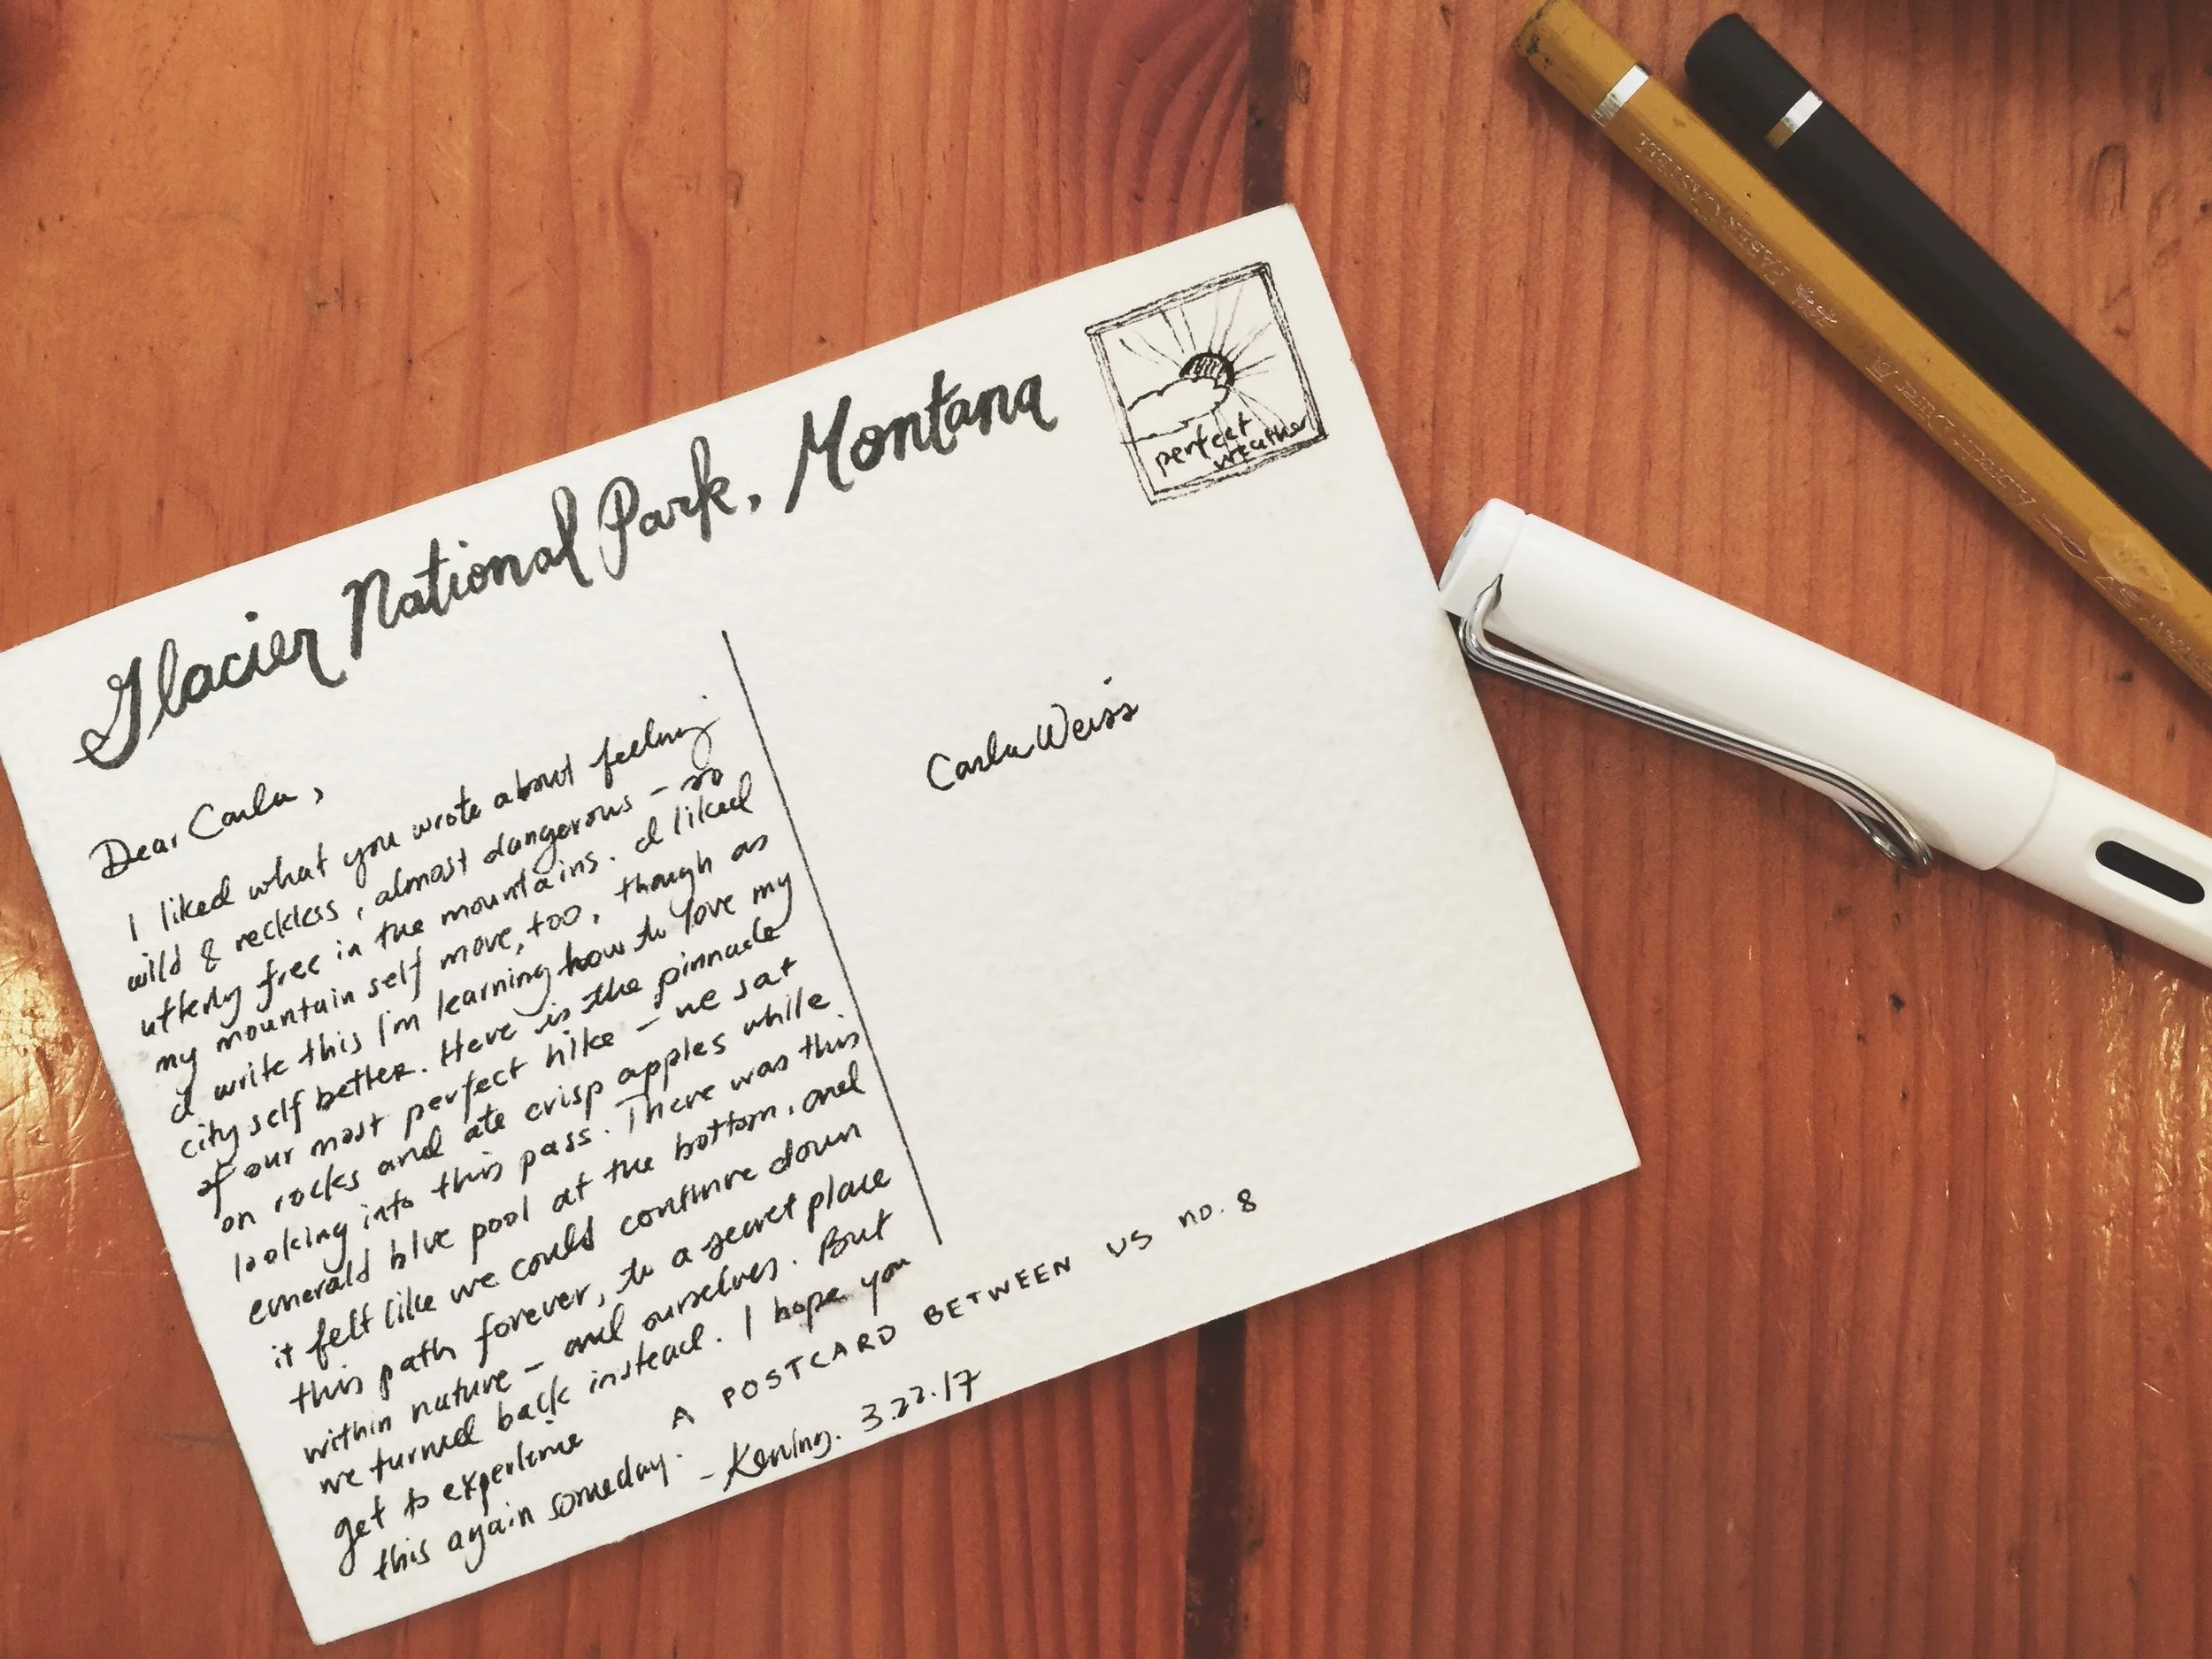 Glacier National Park, Montana
perfect
weather
Dear Carla,
I liked what you wrote about feeling
wild & reckless, almost dangerous – so
utterly free in the mountains. I liked
my mountain self more, too, though as
I write this I'm learning how to love my
city self better. Here is the pinnacle
of our most perfect hike – we sat
on rocks and ate crisp apples while
looking into this pass. There was this
emerald blue pool at the bottom, and
it felt like we could continue down
this path forever, to a secret place
within nature – and ourselves. But
we turned back instead. I hope you
get to experience
this again someday.
– Kening. 3.22.17
Carla Weiss
A POSTCARD BETWEEN US no. 8
FABER-CASTELL